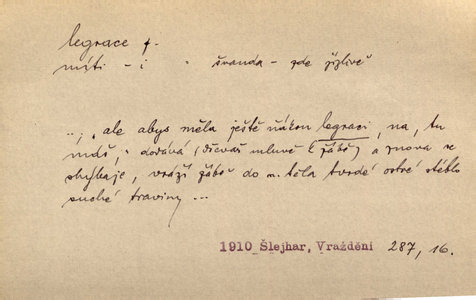 legrace f.
míti - i " švanda - zde jízlivě
"; "ale abys měla ještě ňákou legraci, na, tu
máš," dodává (děvčeti mluvě (žábě) a znova se
shýbaje, vráží žábě do těla tvrdé ostré stéblo
suché traviny ...
1910 Šlejhar, Vraždění 287, 16.